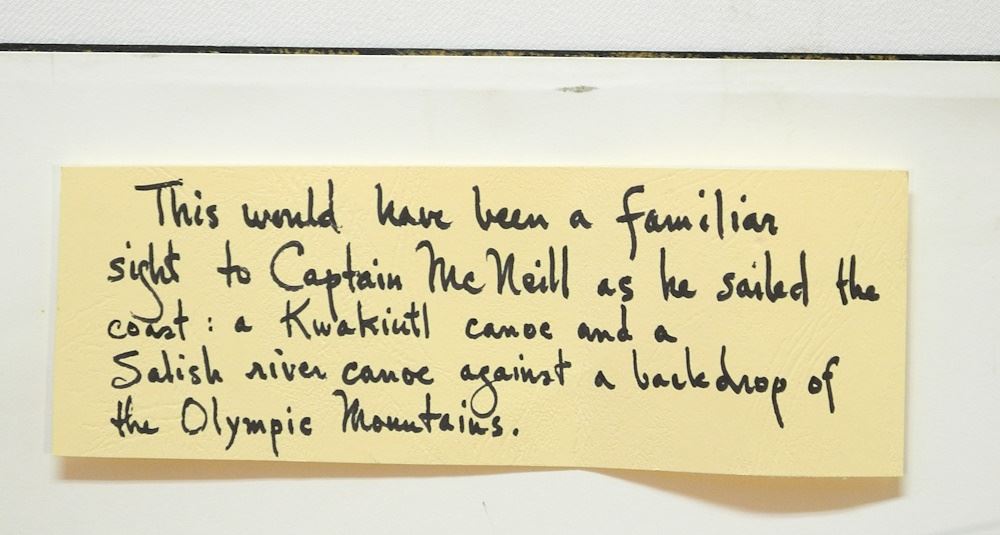 This would have been a familiar
sight to Captain McNeill as he sailed the
coast: a Kwakiutl canoe and a
Salish river canoe against a backdrop of
the Olympic Mountains.